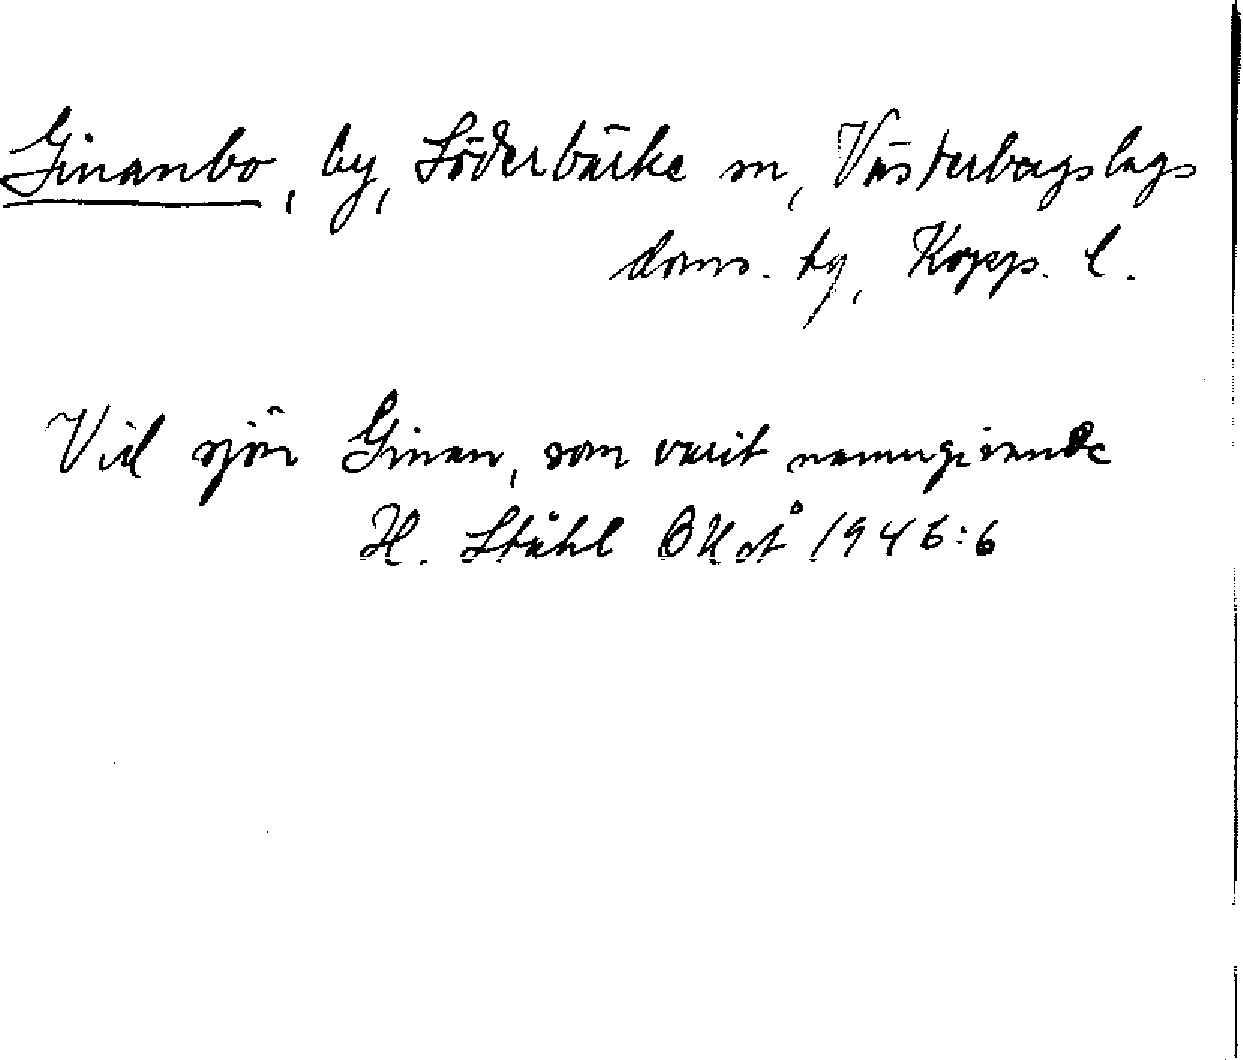 Ginanbo, by, Söderbärke sn, Västerbergslags
doms. tg, Kopp. l.
Vid sjön Ginan, som varit namngivande
H. Ståhl OUst 1946:6